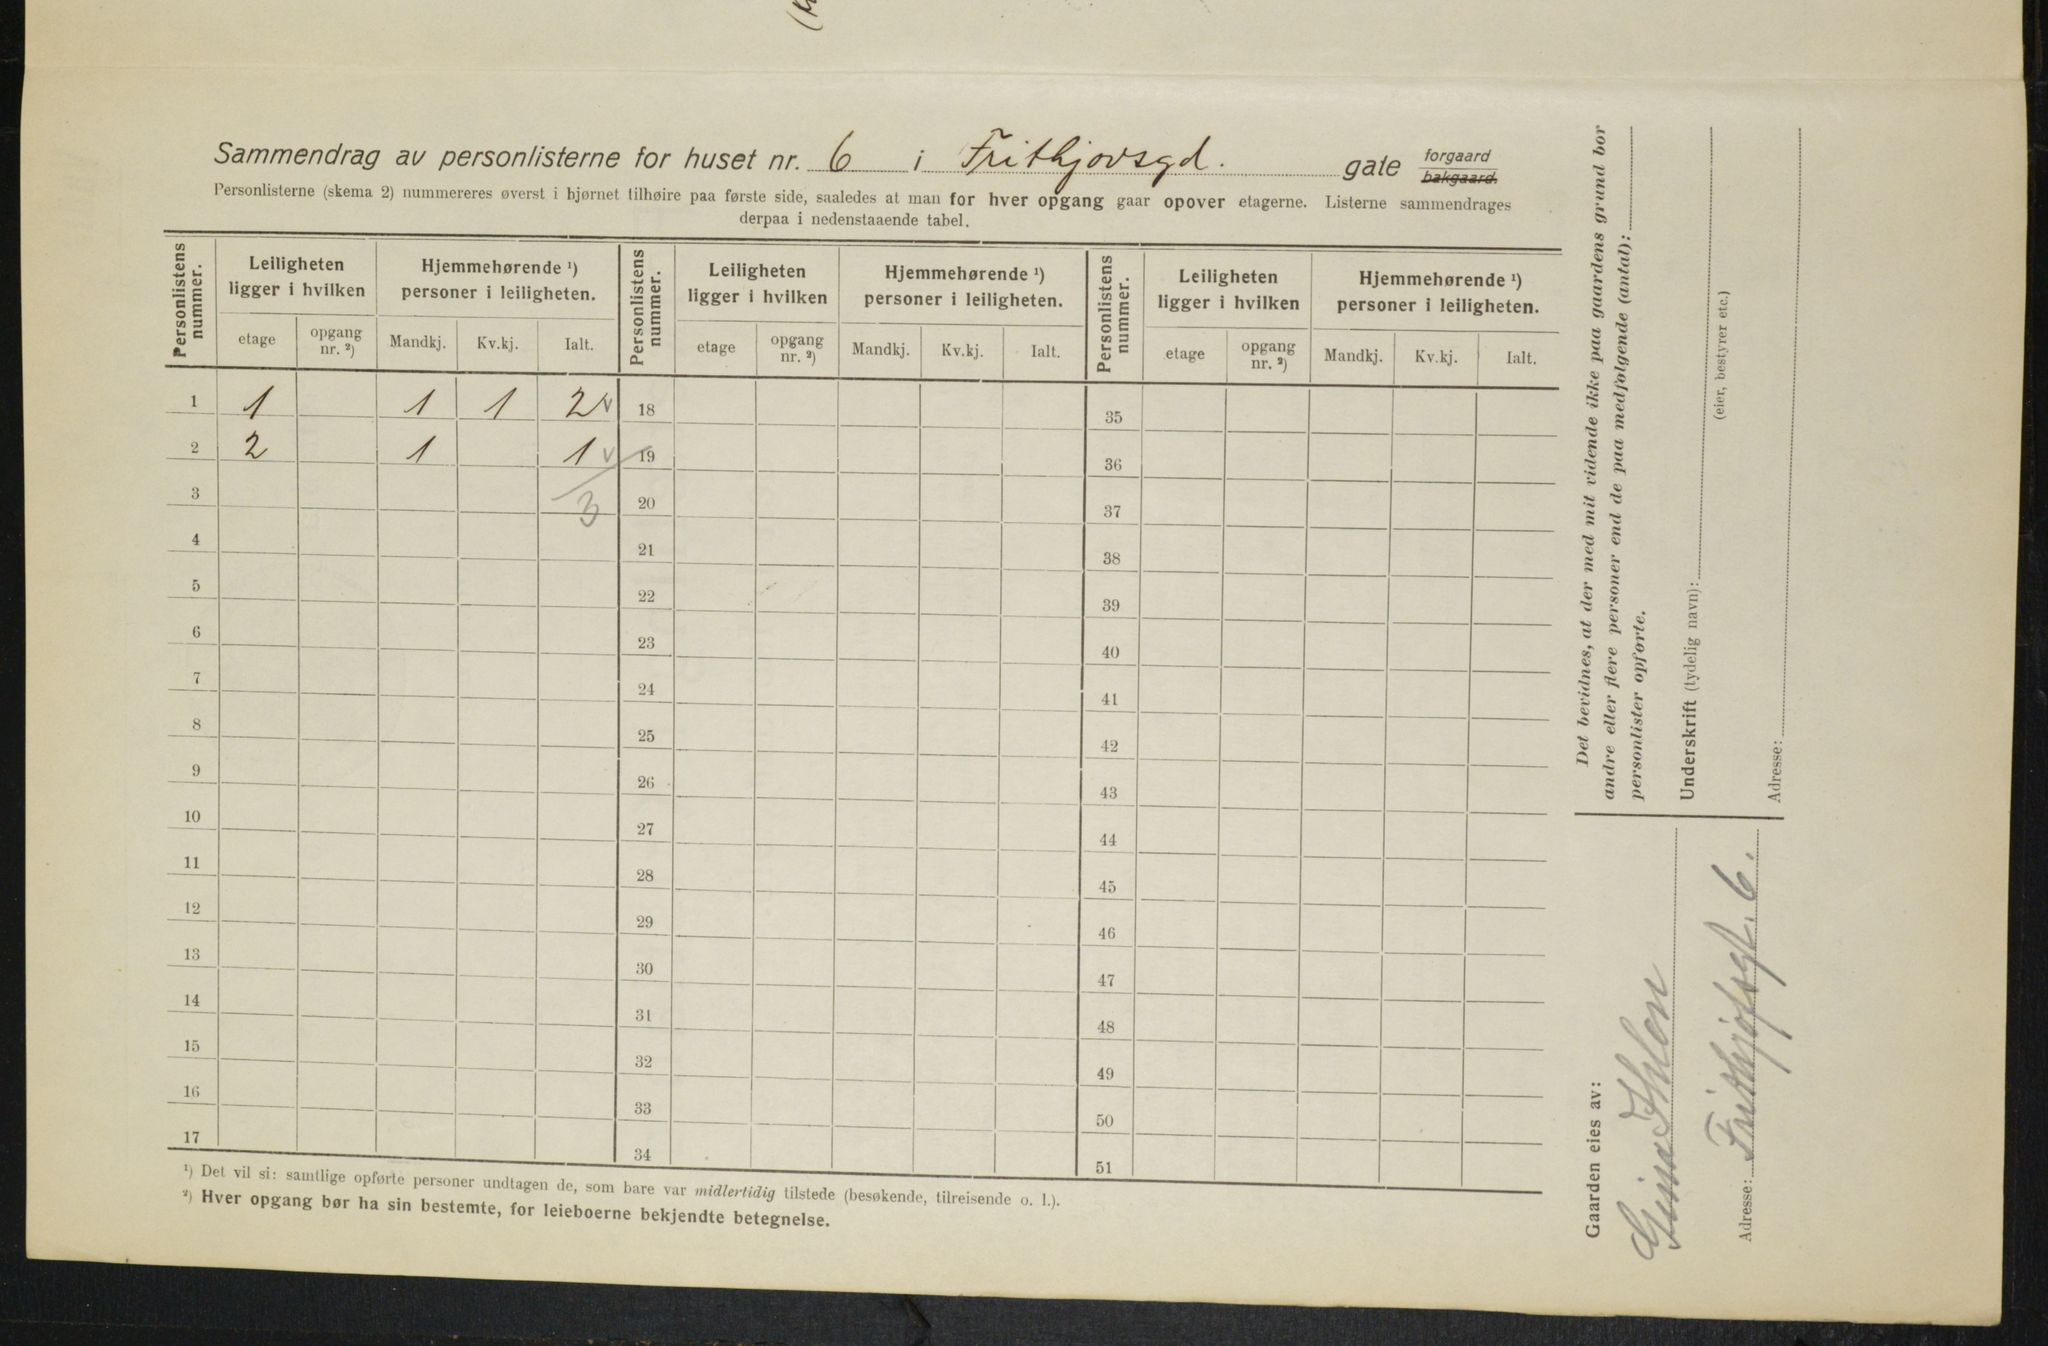 Sammendrag av personlisterne for huset nr. 6 i Frithjovsgd. gate forgaard bakgaard.
Personlisterne (skema 2) nummereres øverst i hjørnet tilhøire paa første side, saaledes at man for hver opgang gaar opover etagerne. Listerne sammendrages
derpaa i nedenstaaende tabel.
Personlistens nummer. Leiligheten ligger i hvilken Hjemmehørende ¹) personer i leiligheten. Personlistens nummer. Leiligheten ligger i hvilken Hjemmehørende ¹) personer i leiligheten. Personlistens nummer. Leiligheten ligger i hvilken Hjemmehørende ¹) personer i leiligheten.
etage opgang nr. ²) Mandkj. Kv.kj. Ialt. etage opgang nr. ²) Mandkj. Kv.kj. Ialt. etage opgang nr. ²) Mandkj. Kv.kj. Ialt.
1 1 1 1 2 v 18 35
2 2 1 1 v 19 36
3 3 20 37
4 21 38
5 22 39
6 23 40
7 24 41
8 25 42
9 26 43
10 27 44
11 28 45
12 29 46
13 30 47
14 31 48
15 32 49
16 33 50
17 34 51
¹) Det vil si: samtlige opførte personer undtagen de, som bare var midlertidig tilstede (besøkende, tilreisende o. l.).
²) Hver opgang bør ha sin bestemte, for leieboerne bekjendte betegnelse.
Det bevidnes, at der med mit vidende ikke paa gaardens grund bor
andre eller flere personer end de paa medfølgende (antal):
personlister opførte.
Underskrift (tydelig navn):
(eier, bestyrer etc.)
Adresse:
Gaarden eies av:
Gina Ihlen
Adresse: Frithjofsgt. 6.